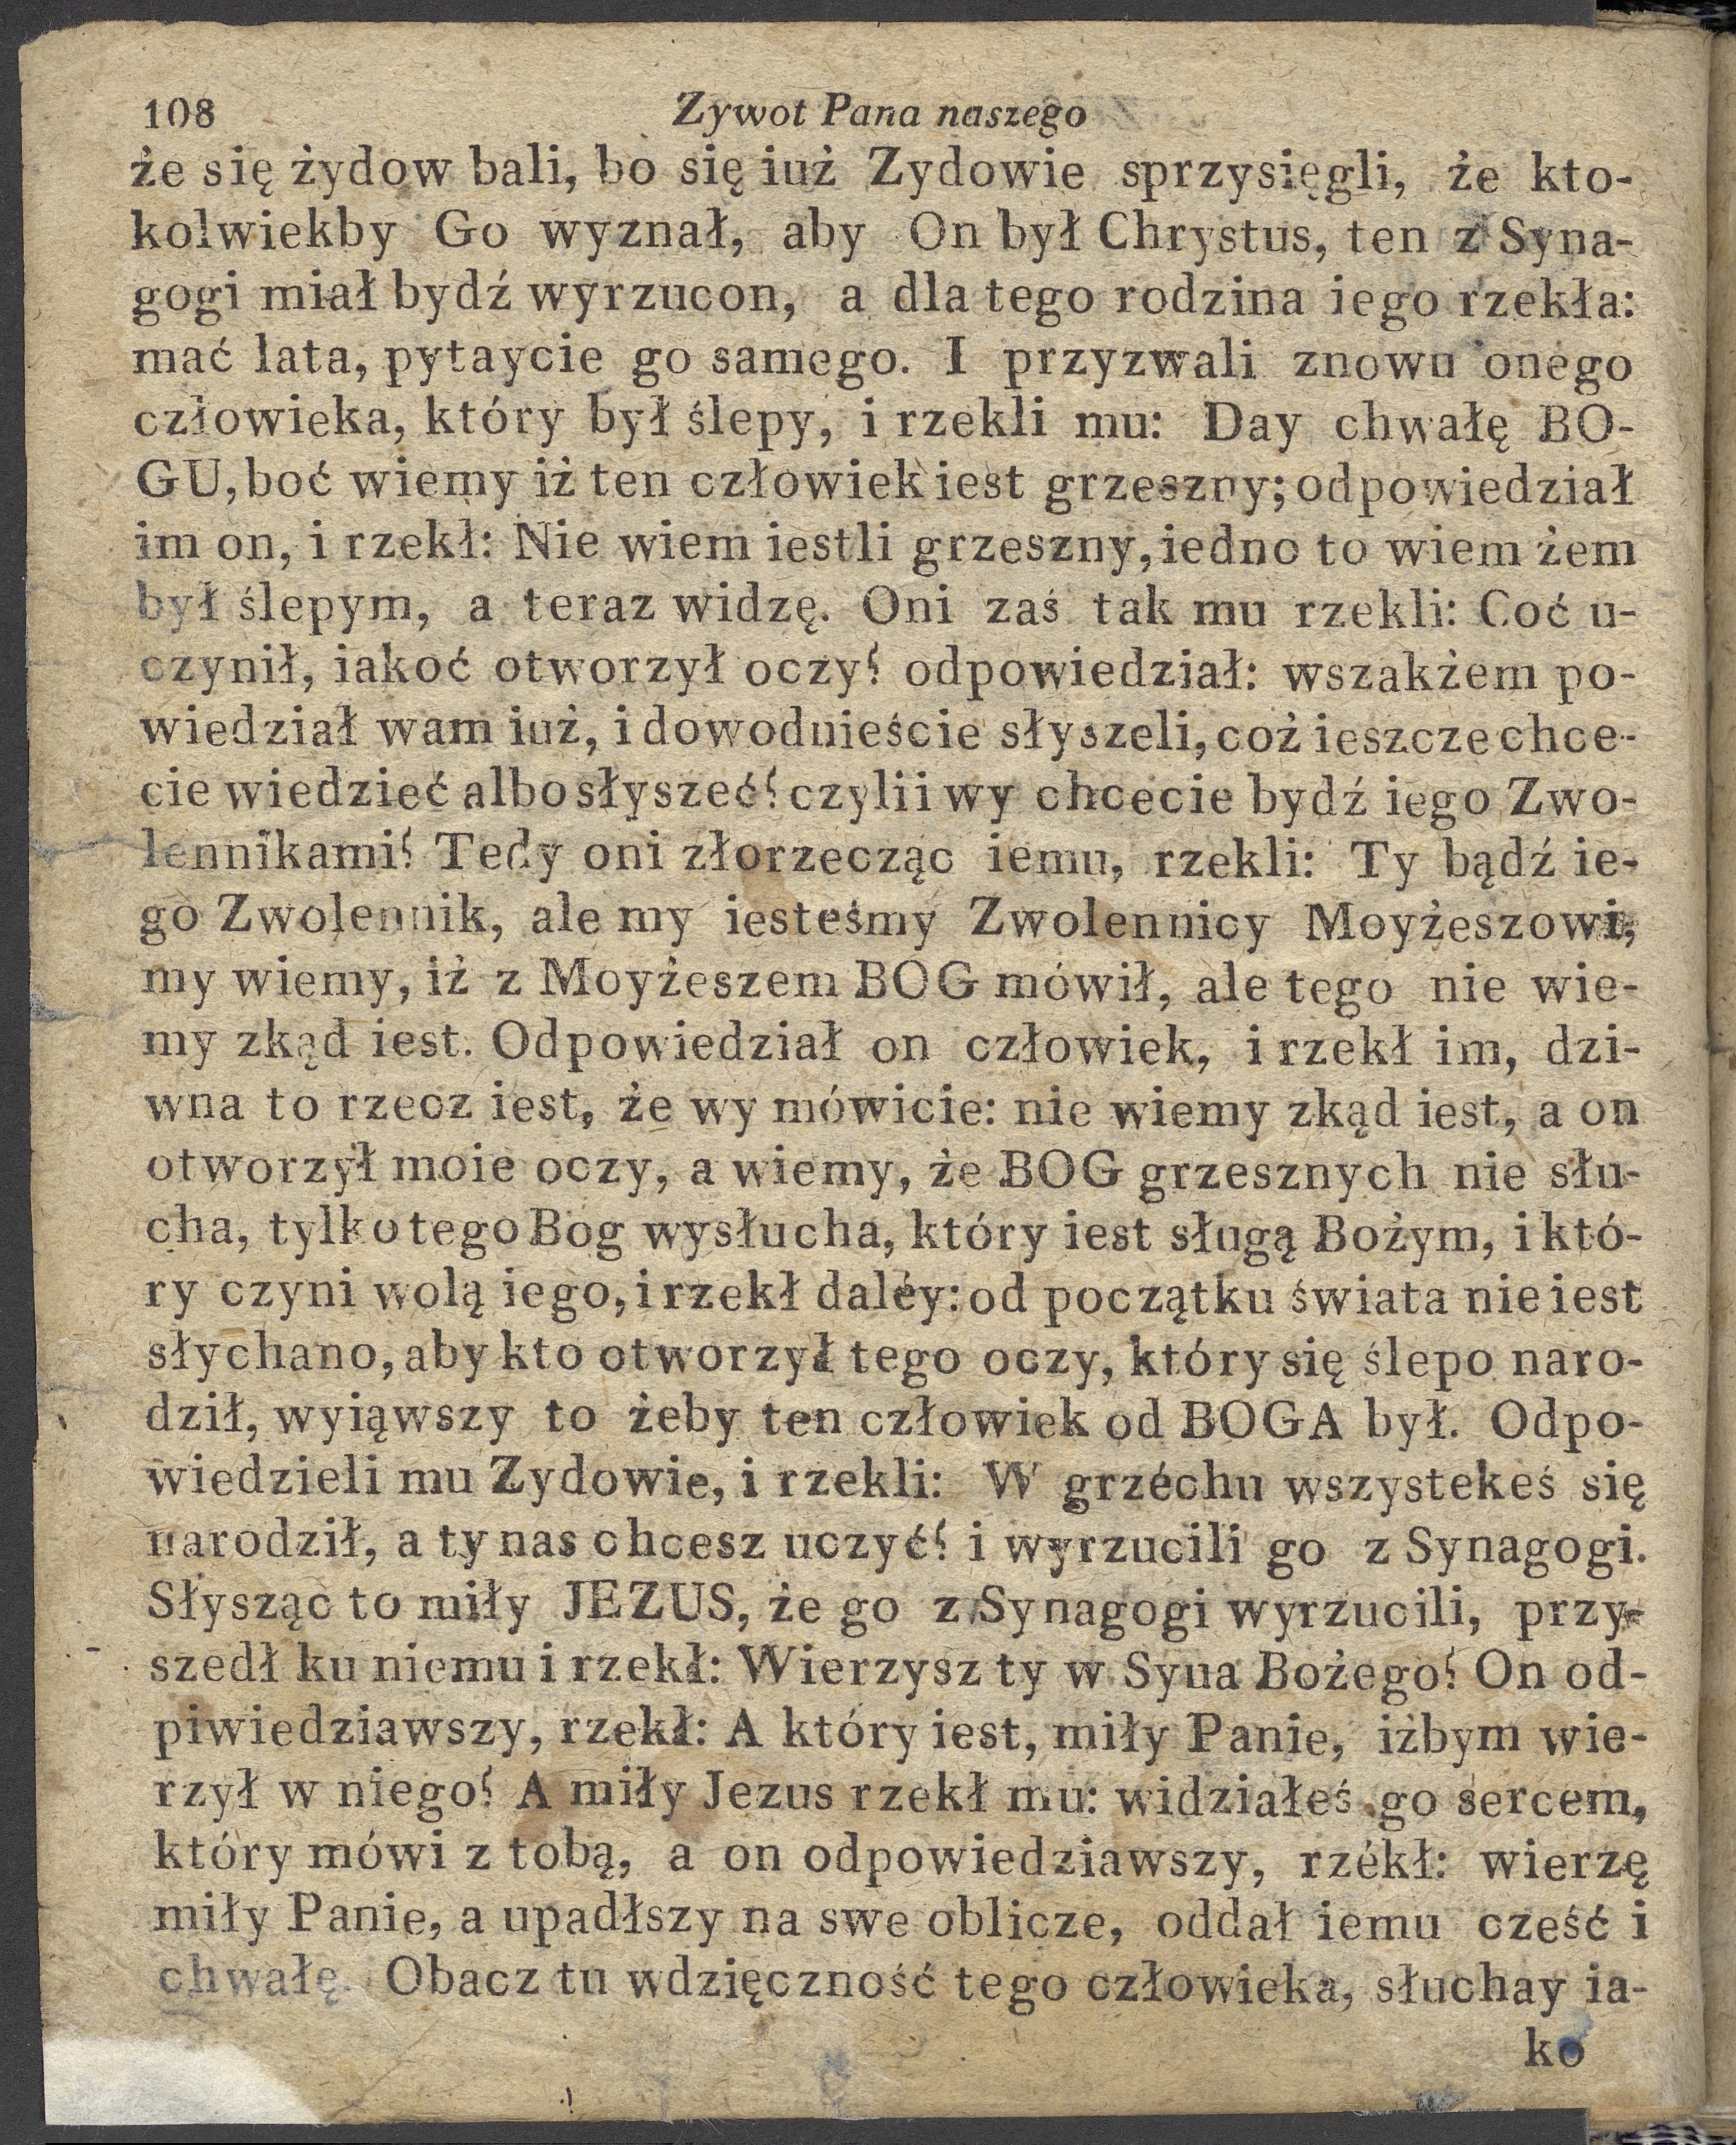 108 Zywot Pana naszego
że się żydow bali, bo się iuż Zydowie sprzysięgli, że kto-
kolwiekby Go wyznał, aby On był Chrystus, ten z Syna-
gogi miał bydź wyrzucon, a dla tego rodzina iego rzekła:
mać lata, pytaycie go samego. I przyzwali znowu onego
człowieka, który był ślepy, i rzekli mu: Day chwałę BO-
GU, boć wiemy iż ten człowiek iest grzeszny; odpowiedział
im on, i rzekł: Nie wiem iestli grzeszny, iedno to wiem żem
był ślepym, a teraz widzę. Oni zaś tak mu rzekli: Coć u-
czynił, iakoć otworzył oczy? odpowiedział: wszakżem po-
wiedział wam iuż, i dowodnieście słyszeli, coż ieszcze chce-
cie wiedzieć albo słyszeć? czyli i wy chcecie bydź iego Zwo-
lennikami? Tedy oni złorzecząc iemu, rzekli: Ty bądź ie-
go Zwolennik, ale my iesteśmy Zwolennicy Moyżeszowi,
my wiemy, iż z Moyżeszem BOG mówił, ale tego nie wie-
my zkąd iest. Odpowiedział on człowiek, i rzekł im, dzi-
wna to rzecz iest, że wy mówicie: nie wiemy zkąd iest, a on
otworzył moie oczy, a wiemy, że BOG grzesznych nie słu-
cha, tylko tego Bog wysłucha, który iest sługą Bożym, i któ-
ry czyni wolą iego, i rzekł daléy: od początku świata nie iest
słychano, aby kto otworzył tego oczy, który się ślepo naro-
dził, wyiąwszy to żeby ten człowiek od BOGA był. Odpo-
wiedzieli mu Zydowie, i rzekli: W grzéchu wszystekeś się
narodził, a ty nas chcesz uczyć? i wyrzucili go z Synagogi.
Słysząc to miły JEZUS, że go z Synagogi wyrzucili, przy-
szedł ku niemu i rzekł: Wierzysz ty w Syna Bożego? On od-
piwiedziawszy, rzekł: A który iest, miły Panie, iżbym wie-
rzył w niego? A miły Jezus rzekł mu: widziałeś go sercem,
który mówi z tobą, a on odpowiedziawszy, rzékł: wierzę
miły Panie, a upadłszy na swe oblicze, oddał iemu cześć i
chwałę. Obacz tu wdzięczność tego człowieka, słuchay ia-
ko